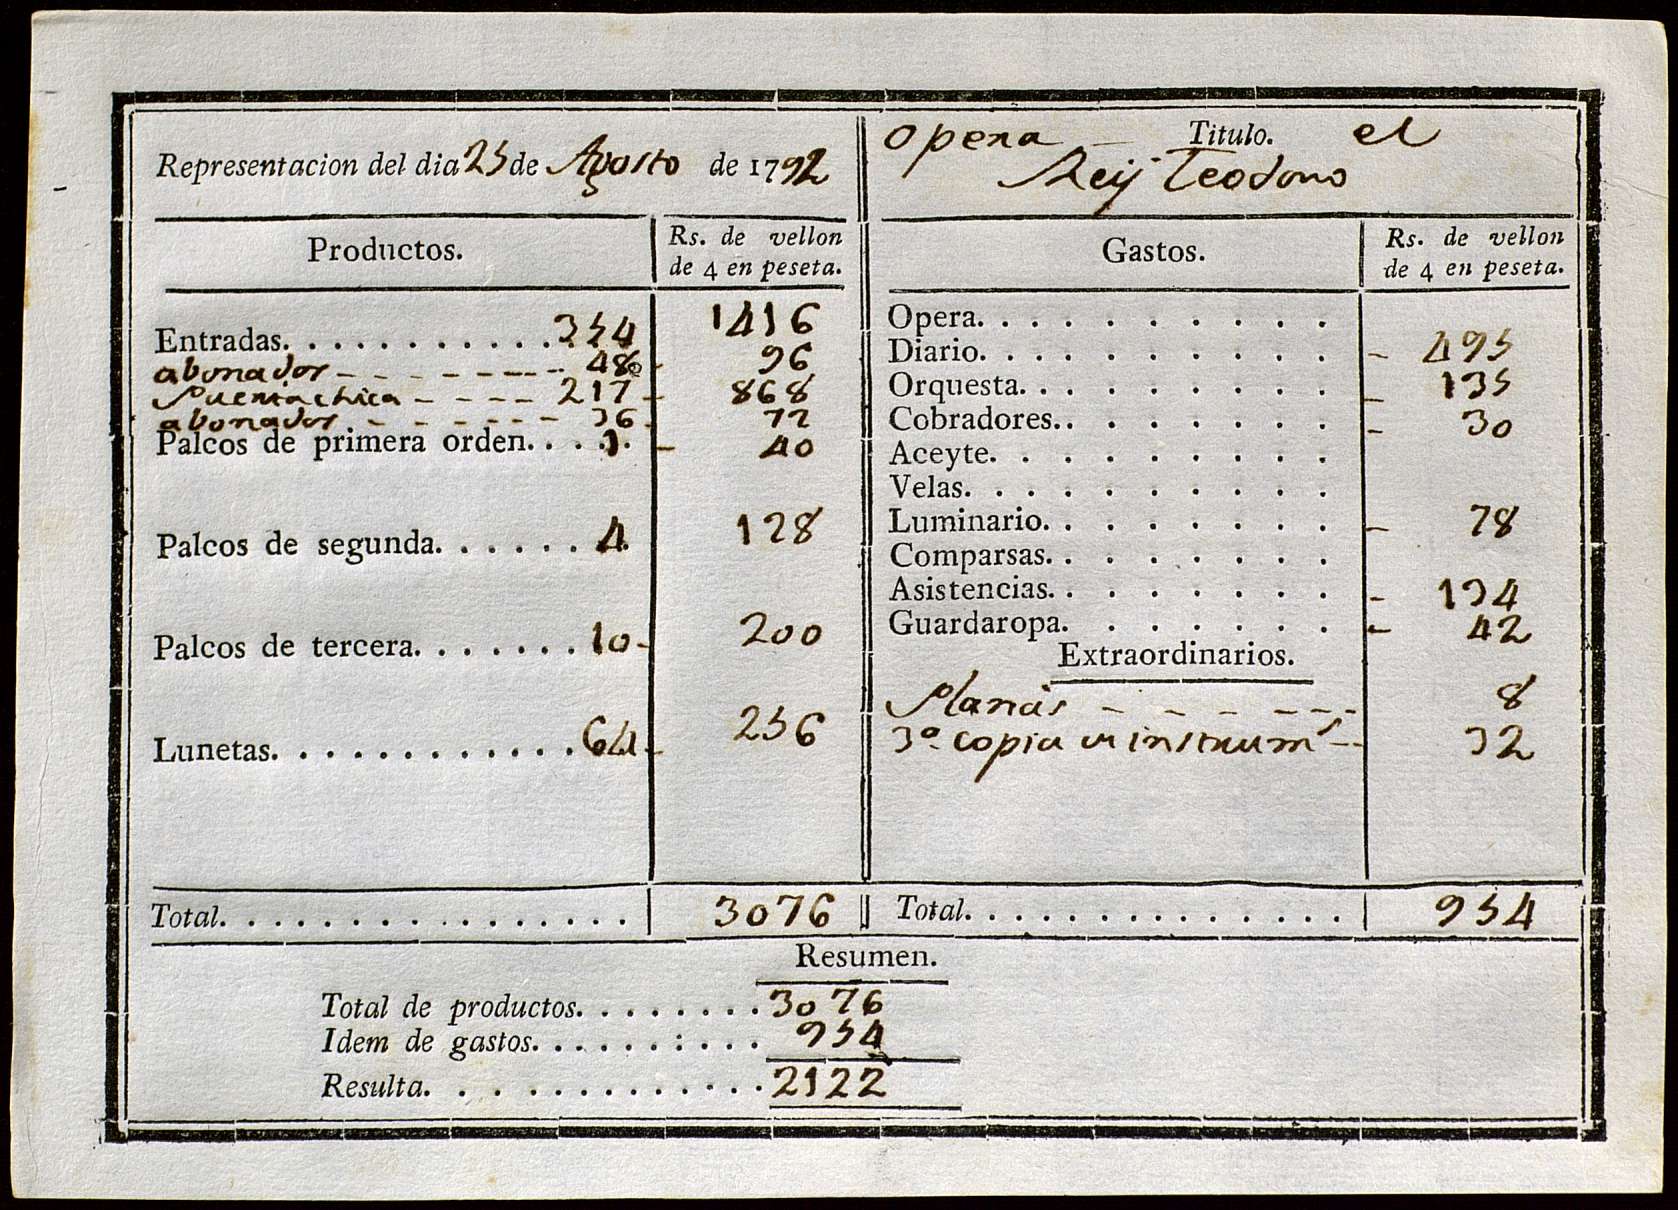 Representacion del dia 25 de Agosto de 1792
opera Titulo. el
Reij Teodoro
Productos.
Rs. de vellon
de 4 en peseta.
Entradas. 354 1416
abonados 48 96
Puerta chica 217 868
abonados 36 72
Palcos de primera orden. 1 40
Palcos de segunda. 4 128
Palcos de tercera. 10 200
Lunetas. 64 256
Total. 3076
Gastos.
Rs. de vellon
de 4 en peseta.
Opera.
Diario. 495
Orquesta. 135
Cobradores. 30
Aceyte.
Velas.
Luminario. 78
Comparsas.
Asistencias. 134
Guardaropa. 42
Extraordinarios.
8
3ª copia instrumˢ 32
Total. 954
Resumen.
Total de productos. 3076
Idem de gastos. 954
Resulta. 2122